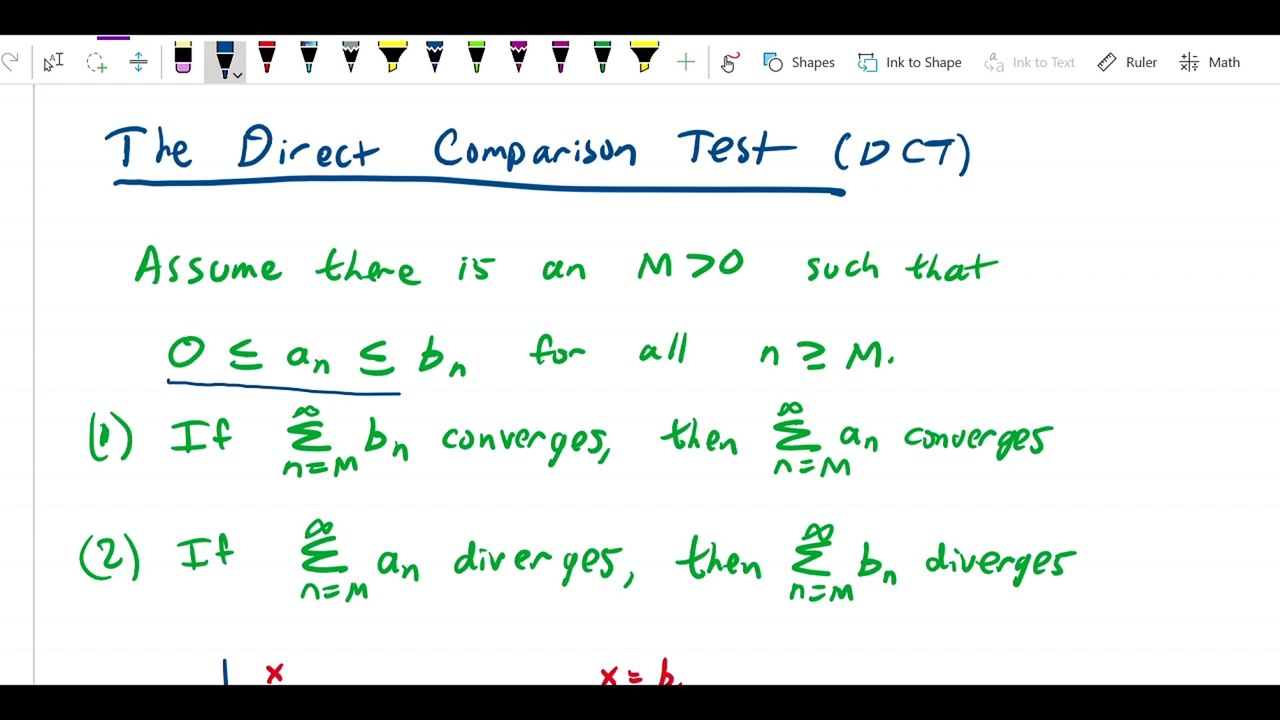 Shapes Ink to Shape Ink to Text Ruler Math
The Direct Comparison Test (DCT)
Assume there is an M>0 such that
0 ≤ aₙ ≤ bₙ for all n ≥ M.
(1) If ∞∑n=M bₙ converges, then ∞∑n=M aₙ converges
(2) If ∞∑n=M aₙ diverges, then ∞∑n=M bₙ diverges
x x = b